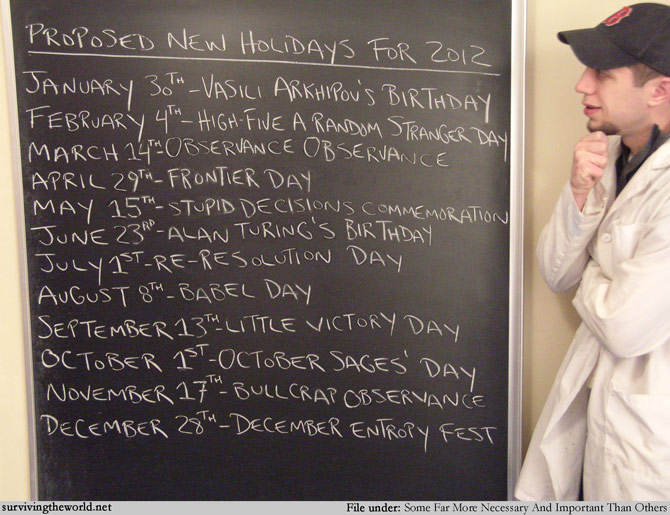 PROPOSED NEW HOLIDAYS FOR 2012
JANUARY 30TH-VASILI ARKHIPOV'S BIRTHDAY
FEBRUARY 4TH-HIGH-FIVE A RANDOM STRANGER DAY
MARCH 14TH OBSERVANCE OBSERVANCE
APRIL 29TH-FRONTIER DAY
MAY 15TH-STUPID DECISIONS COMMEMORATION
JUNE 23RD-ALAN TURING'S BIRTHDAY
JULY 1ST-RE-RESOLUTION DAY
AUGUST 8TH-BABEL DAY
SEPTEMBER 13TH-LITTLE VICTORY DAY
OCTOBER 1ST-OCTOBER SAGES' DAY
NOVEMBER 17TH-BULLCRAP OBSERVANCE
DECEMBER 28TH-DECEMBER ENTROPY FEST
B
survivingtheworld.net File under: Some Far More Necessary And Important Than Others